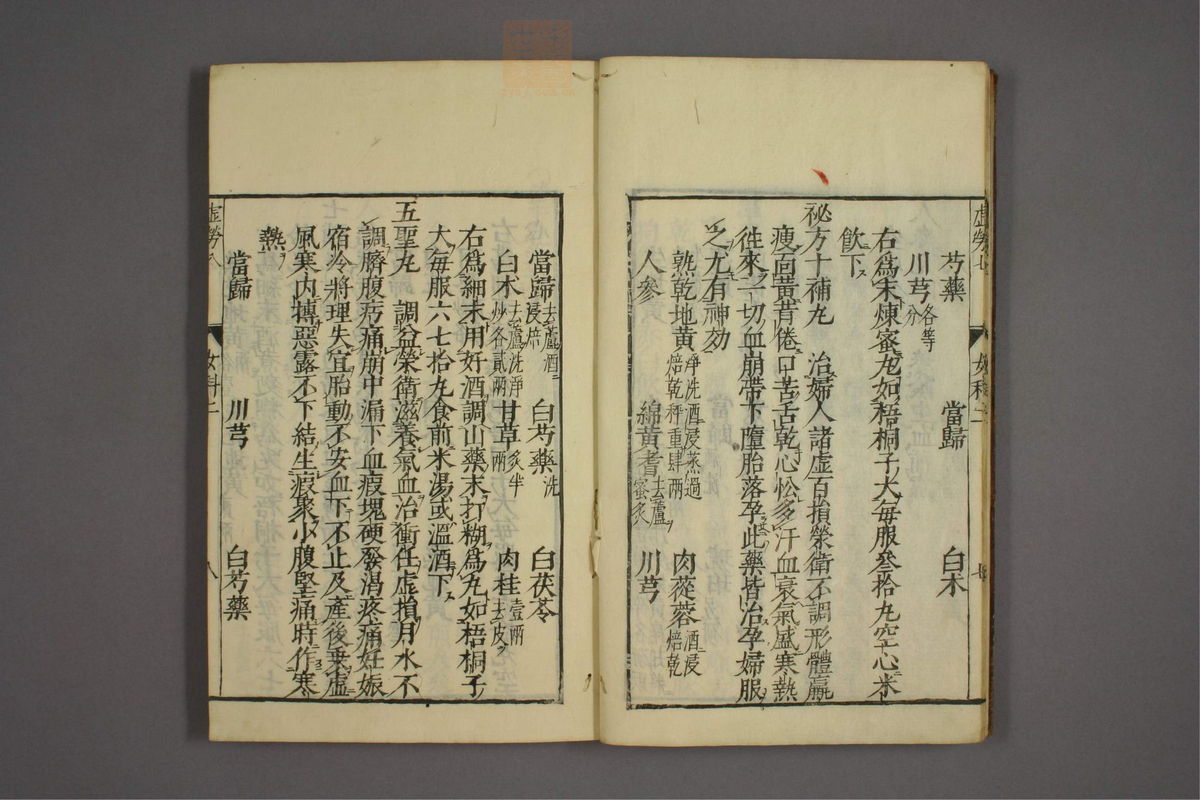 虛勞七 女科二 七
芍藥 當歸 白朮
川芎各等分
右爲末煉蜜丸如梧桐子大每服叁拾丸空心米
飲下
祕方十補丸 治婦人諸虛百損榮衛不調形體羸
瘦面黃背倦口苦舌乾心忪多汗血衰氣盛寒熱
徃來一切血崩帶下墮胎落孕此藥皆治孕婦服
之尤有神効
熟乾地黃淨洗酒浸蒸過焙乾秤重肆兩 肉蓯蓉酒浸焙乾
人參 綿黃耆去蘆蜜炙 川芎
當歸去蘆酒浸焙 白芍藥洗 白茯苓
白朮去蘆洗淨炒各貳兩 甘草炙半兩 肉桂壹兩去皮
右爲細末用好酒調山藥末打糊爲丸如梧桐子
大每服六七拾丸食前米湯或溫酒下
五聖丸 調益榮衛滋養氣血治衝任虛損月水不
調臍腹㽲痛崩中漏下血瘕塊硬發渴疼痛妊娠
宿冷將理失宜胎動不安血下不止及產後乗虛
風寒內搏惡露不下結生瘕聚小腹堅痛時作寒
熱
當歸 川芎 白芍藥
虛勞八 女科二 八